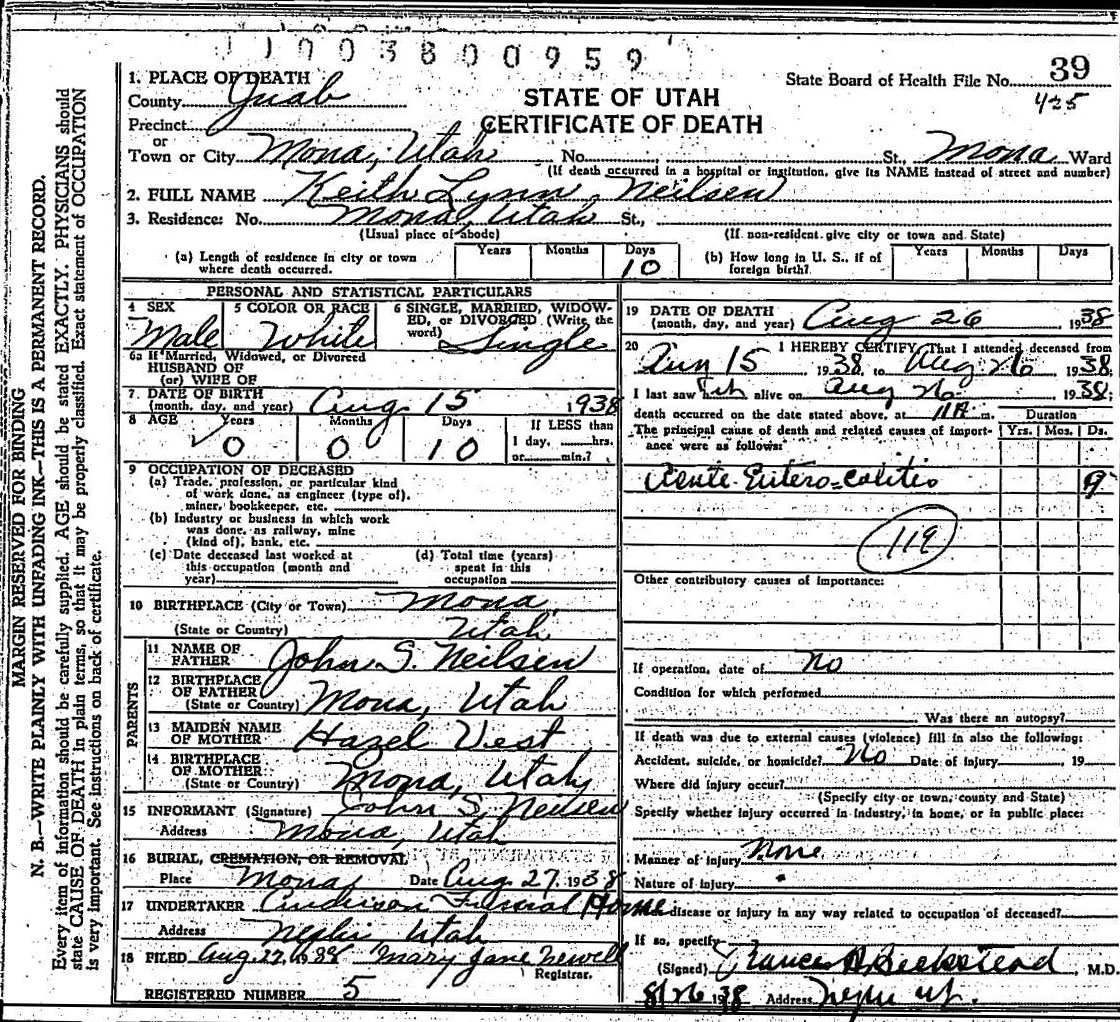 1 1 0 0 3 8 0 0 9 5 9
1. PLACE OF DEATH
County Juab
Precinct
or
Town or City Mona, Utah No. St., Mona Ward
(If death occurred in a hospital or institution, give its NAME instead of street and number)
State Board of Health File No. 39
425
STATE OF UTAH
CERTIFICATE OF DEATH
2. FULL NAME Keith Lynn Neilsen
3. Residence: No. Mona, Utah St.,
(Usual place of abode) (If non-resident give city or town and State)
(a) Length of residence in city or town where death occurred. Years Months Days 10
(b) How long in U. S., if of foreign birth? Years Months Days
PERSONAL AND STATISTICAL PARTICULARS
4 SEX Male
5 COLOR OR RACE White
6 SINGLE, MARRIED, WIDOWED, or DIVORCED (Write the word) Single
6a If Married, Widowed, or Divorced
HUSBAND OF
(or) WIFE OF
7 DATE OF BIRTH
(month, day, and year) Aug 15 1938
8 AGE Years 0 Months 0 Days 10
If LESS than
1 day, hrs.
or min.?
9 OCCUPATION OF DECEASED
(a) Trade, profession, or particular kind
of work done, as engineer (type of),
miner, bookkeeper, etc.
(b) Industry or business in which work
was done, as railway, mine
(kind of), bank, etc.
(c) Date deceased last worked at
this occupation (month and
year)
(d) Total time (years)
spent in this
occupation
10 BIRTHPLACE (City or Town) Mona,
(State or Country) Utah
PARENTS
11 NAME OF
FATHER John S. Neilsen
12 BIRTHPLACE
OF FATHER
(State or Country) Mona, Utah
13 MAIDEN NAME
OF MOTHER Hazel Vest
14 BIRTHPLACE
OF MOTHER
(State or Country) Mona, Utah
15 INFORMANT (Signature) John S. Neilsen
Address Mona, Utah
16 BURIAL, CREMATION, OR REMOVAL
Place Mona Date Aug. 27, 1938
17 UNDERTAKER Anderson Funeral Home
Address Nephi, Utah
18 FILED Aug. 27, 1938 Mary Jane Newell
Registrar.
REGISTERED NUMBER 5
19 DATE OF DEATH
(month, day, and year) Aug 26 1938
20 I HEREBY CERTIFY, That I attended deceased from
15 1938, to Aug 26 1938;
I last saw alive on Aug 26 1938;
death occurred on the date stated above, at 11 m.
Duration
The principal cause of death and related causes of importance were as follows: Yrs. Mos. Ds.
Acute Entero-colitis 9
119
Other contributory causes of importance:
If operation, date of no
Condition for which performed
Was there an autopsy?
If death was due to external causes (violence) fill in also the following:
Accident, suicide, or homicide? No Date of injury , 19
Where did injury occur?
(Specify city or town, county and State)
Specify whether injury occurred in industry, in home, or in public place:
Manner of injury none
Nature of injury
disease or injury in any way related to occupation of deceased?
If so, specify
(Signed) Beckstead, M.D.
8/26 1938 Address Nephi Ut.
MARGIN RESERVED FOR BINDING
N. B.—WRITE PLAINLY WITH UNFADING INK—THIS IS A PERMANENT RECORD.
Every item of information should be carefully supplied. AGE should be stated EXACTLY. PHYSICIANS should
state CAUSE OF DEATH in plain terms, so that it may be properly classified. Exact statement of OCCUPATION
is very important. See instructions on back of certificate.